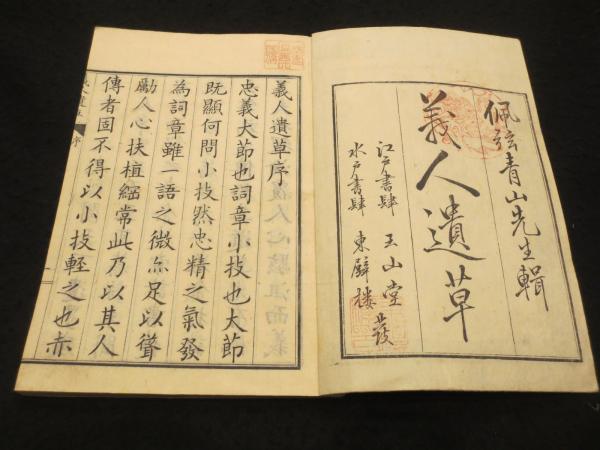 佩弦青山先生輯
義人遺草
江戸書肆 玉山堂
水戸書肆 東壁楼 發
義人遺草序
忠義大節也詞章小技也大節
既顯何問小技然忠精之氣發
為詞章雖一語之微亦足以聳
勵人心扶植綱常此乃以其人
傳者固不得以小技輕之也赤
序